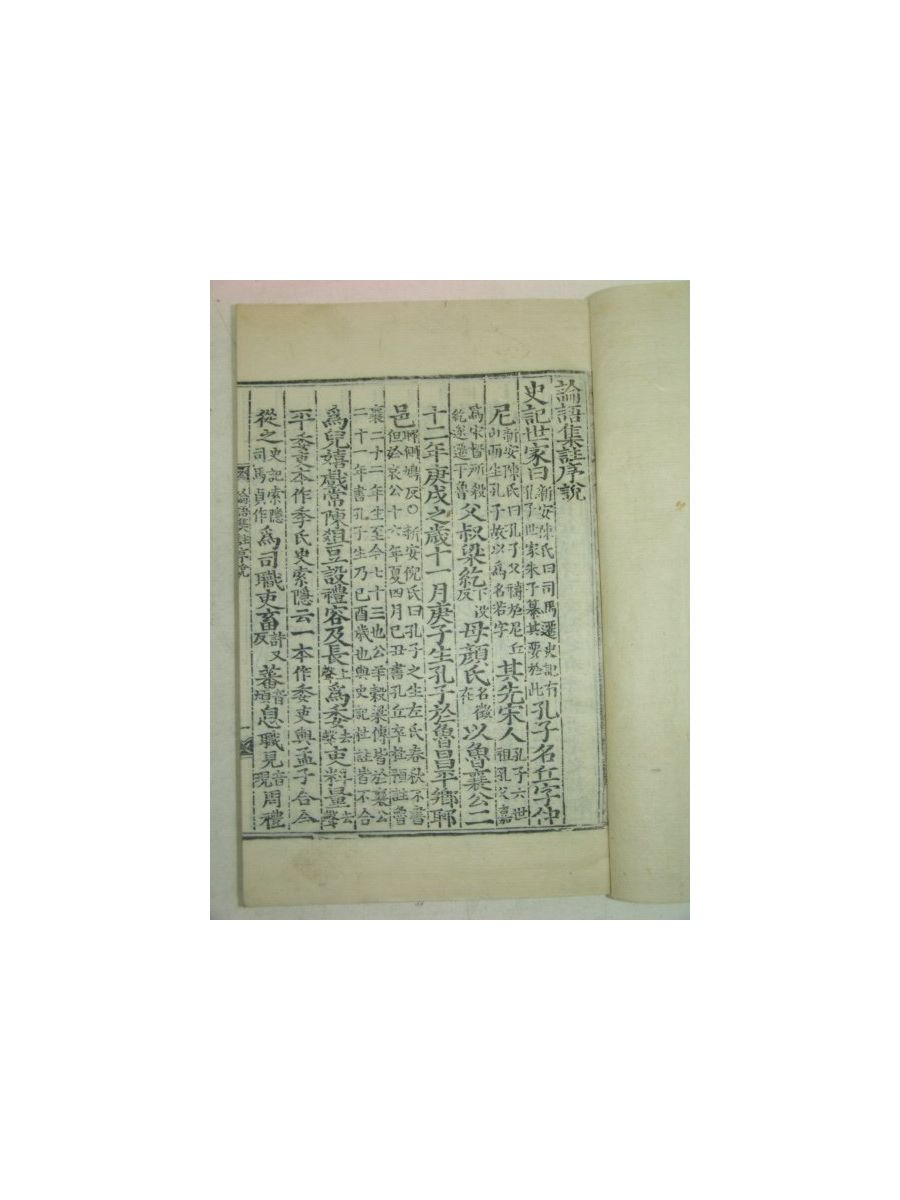 論語集註序說
史記世家曰新安陳氏曰司馬遷史記有孔子世家朱子纂其要於此孔子名丘字仲
尼新安陳氏曰孔子父禱於尼丘山而生孔子故以爲名若字其先宋人孔子六世祖孔父嘉
爲宋督所殺紇遂遷于魯父叔梁紇下沒反母顔氏名徵在以魯襄公二
十二年庚戌之歲十一月庚子生孔子於魯昌平鄕郰
邑郰側鳩反○新安倪氏曰孔子之生左氏春秋不書但於哀公十六年夏四月己丑書孔丘卒杜預註魯
襄二十二年生至今七十三也公羊穀梁傳皆於襄公二十一年書孔子生乃己酉歲也與史記杜註皆不合
爲兒嬉戲常陳俎豆設禮容及長上聲爲委去聲吏料量去聲
平委吏本作季氏史索隱云一本作委吏與孟子合今
從之史記索隱司馬貞作爲司職吏畜許又反蕃音息職見音現周禮
論語集註序說 一